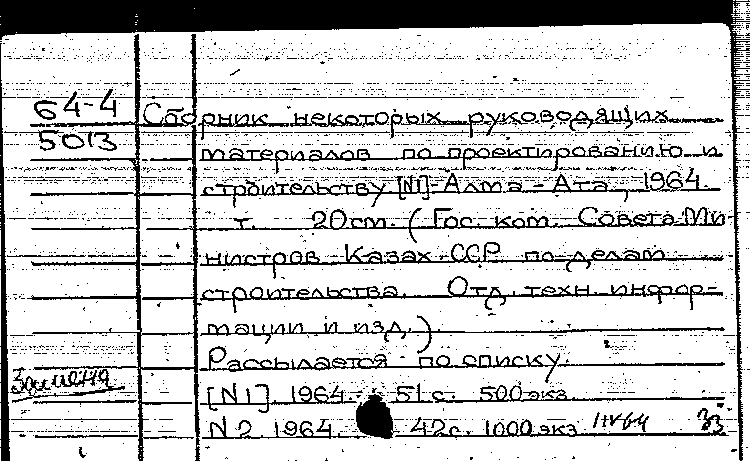 64-4 Сборник некоторых руководящих
5013
материалов по проектированию и
строительству [N1]-Алма-Ата, 1964.
т. 20см. (Гос. ком. Совета Ми-
нистров Казах ССР по делам
строительства. Отд. техн. инфор-
мации и изд.)
Рассылается по списку.
[N1]. 1964. 51 с. 500 экз.
N2 1964. 42с. 1000 экз